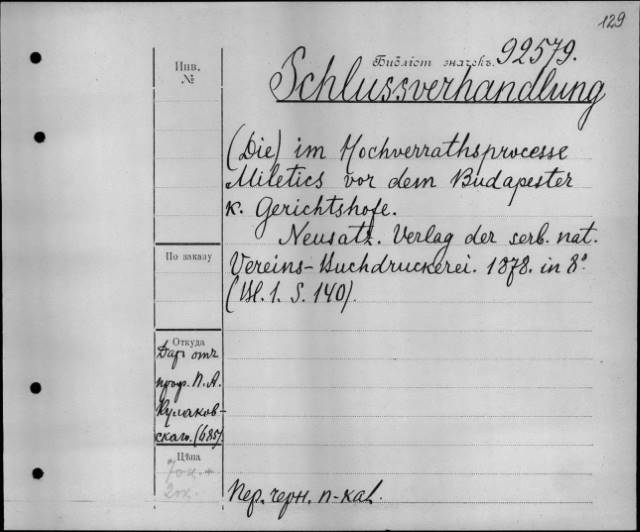 129
Инв.
№
Библіот. значекъ. 92579.
Schlussverhandlung
(Die) im Hochverrathsprocesse
Miletics vor dem Budapester
k. Gerichtshofe.
Neusatz. Verlag der serb. nat.
По заказу
Vereins-Buchdruckerei. 1878. in 8°
(Bl. 1. S. 140).
Откуда
Даръ отъ
проф. П. А.
Кулаков-
скаго. (685)
Цѣна
70к. +
2к.
Пер. черн. п-kal.